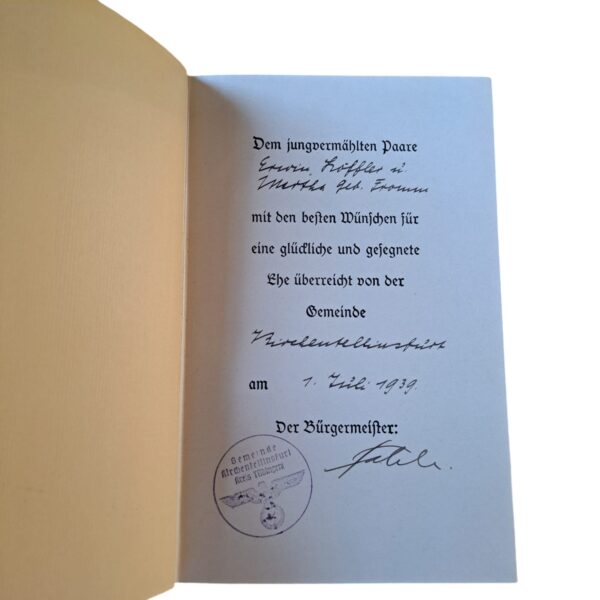 Dem jungvermählten Paare
Erwin Löffler u.
Martha geb. Fromm
mit den besten Wünschen für
eine glückliche und gesegnete
Ehe überreicht von der
Gemeinde
Kirchentellinsfurt
am 1. Juli 1939.
Der Bürgermeister:
Gemeinde
Kirchentellinsfurt
Kreis Tübingen